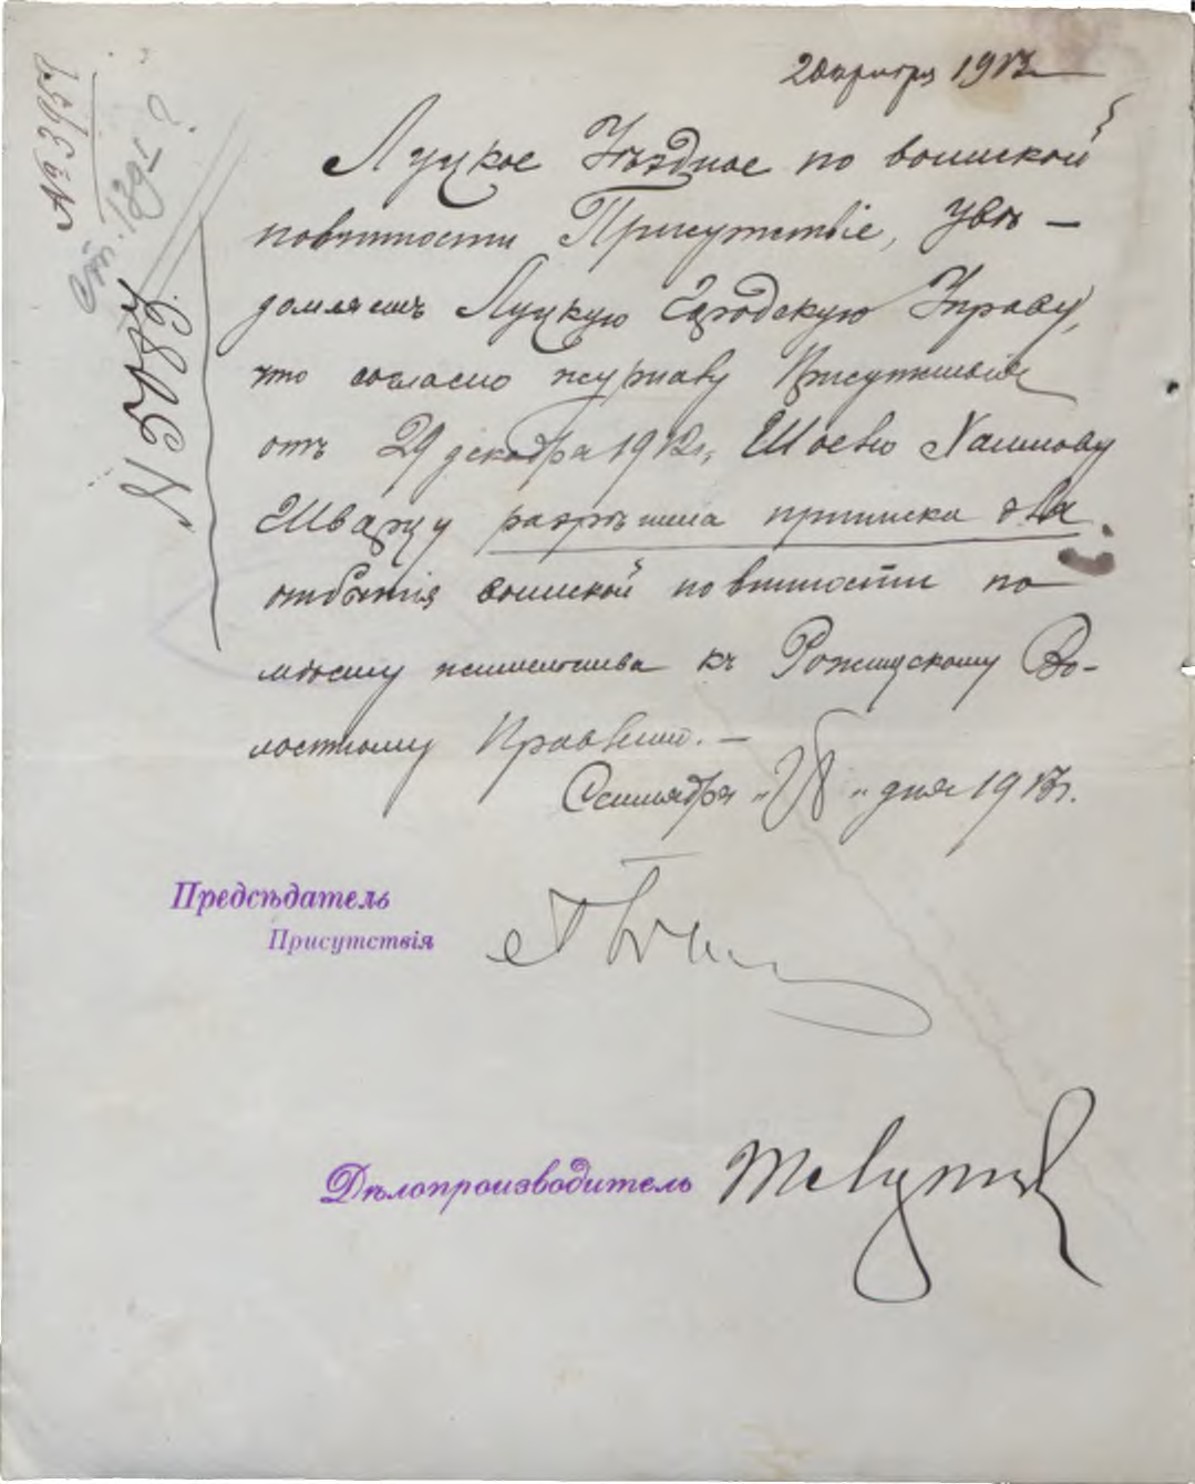 2 октября 1913
№ 3957
ст. 139
№ 5089.
Луцкое Уѣздное по воинской
повинности Присутствіе, увѣ-
домляетъ Луцкую Городскую Управу,
что согласно журналу Присутствія
отъ 29 декабря 1912 г.,
Шварцу разрѣшена приписка для
отбытія воинской повинности по
мѣсту жительства къ Рожищскому Во-
лостному Правленію. —
Сентября " " дня 1913 г.
Предсѣдатель
Присутствія
Дѣлопроизводитель